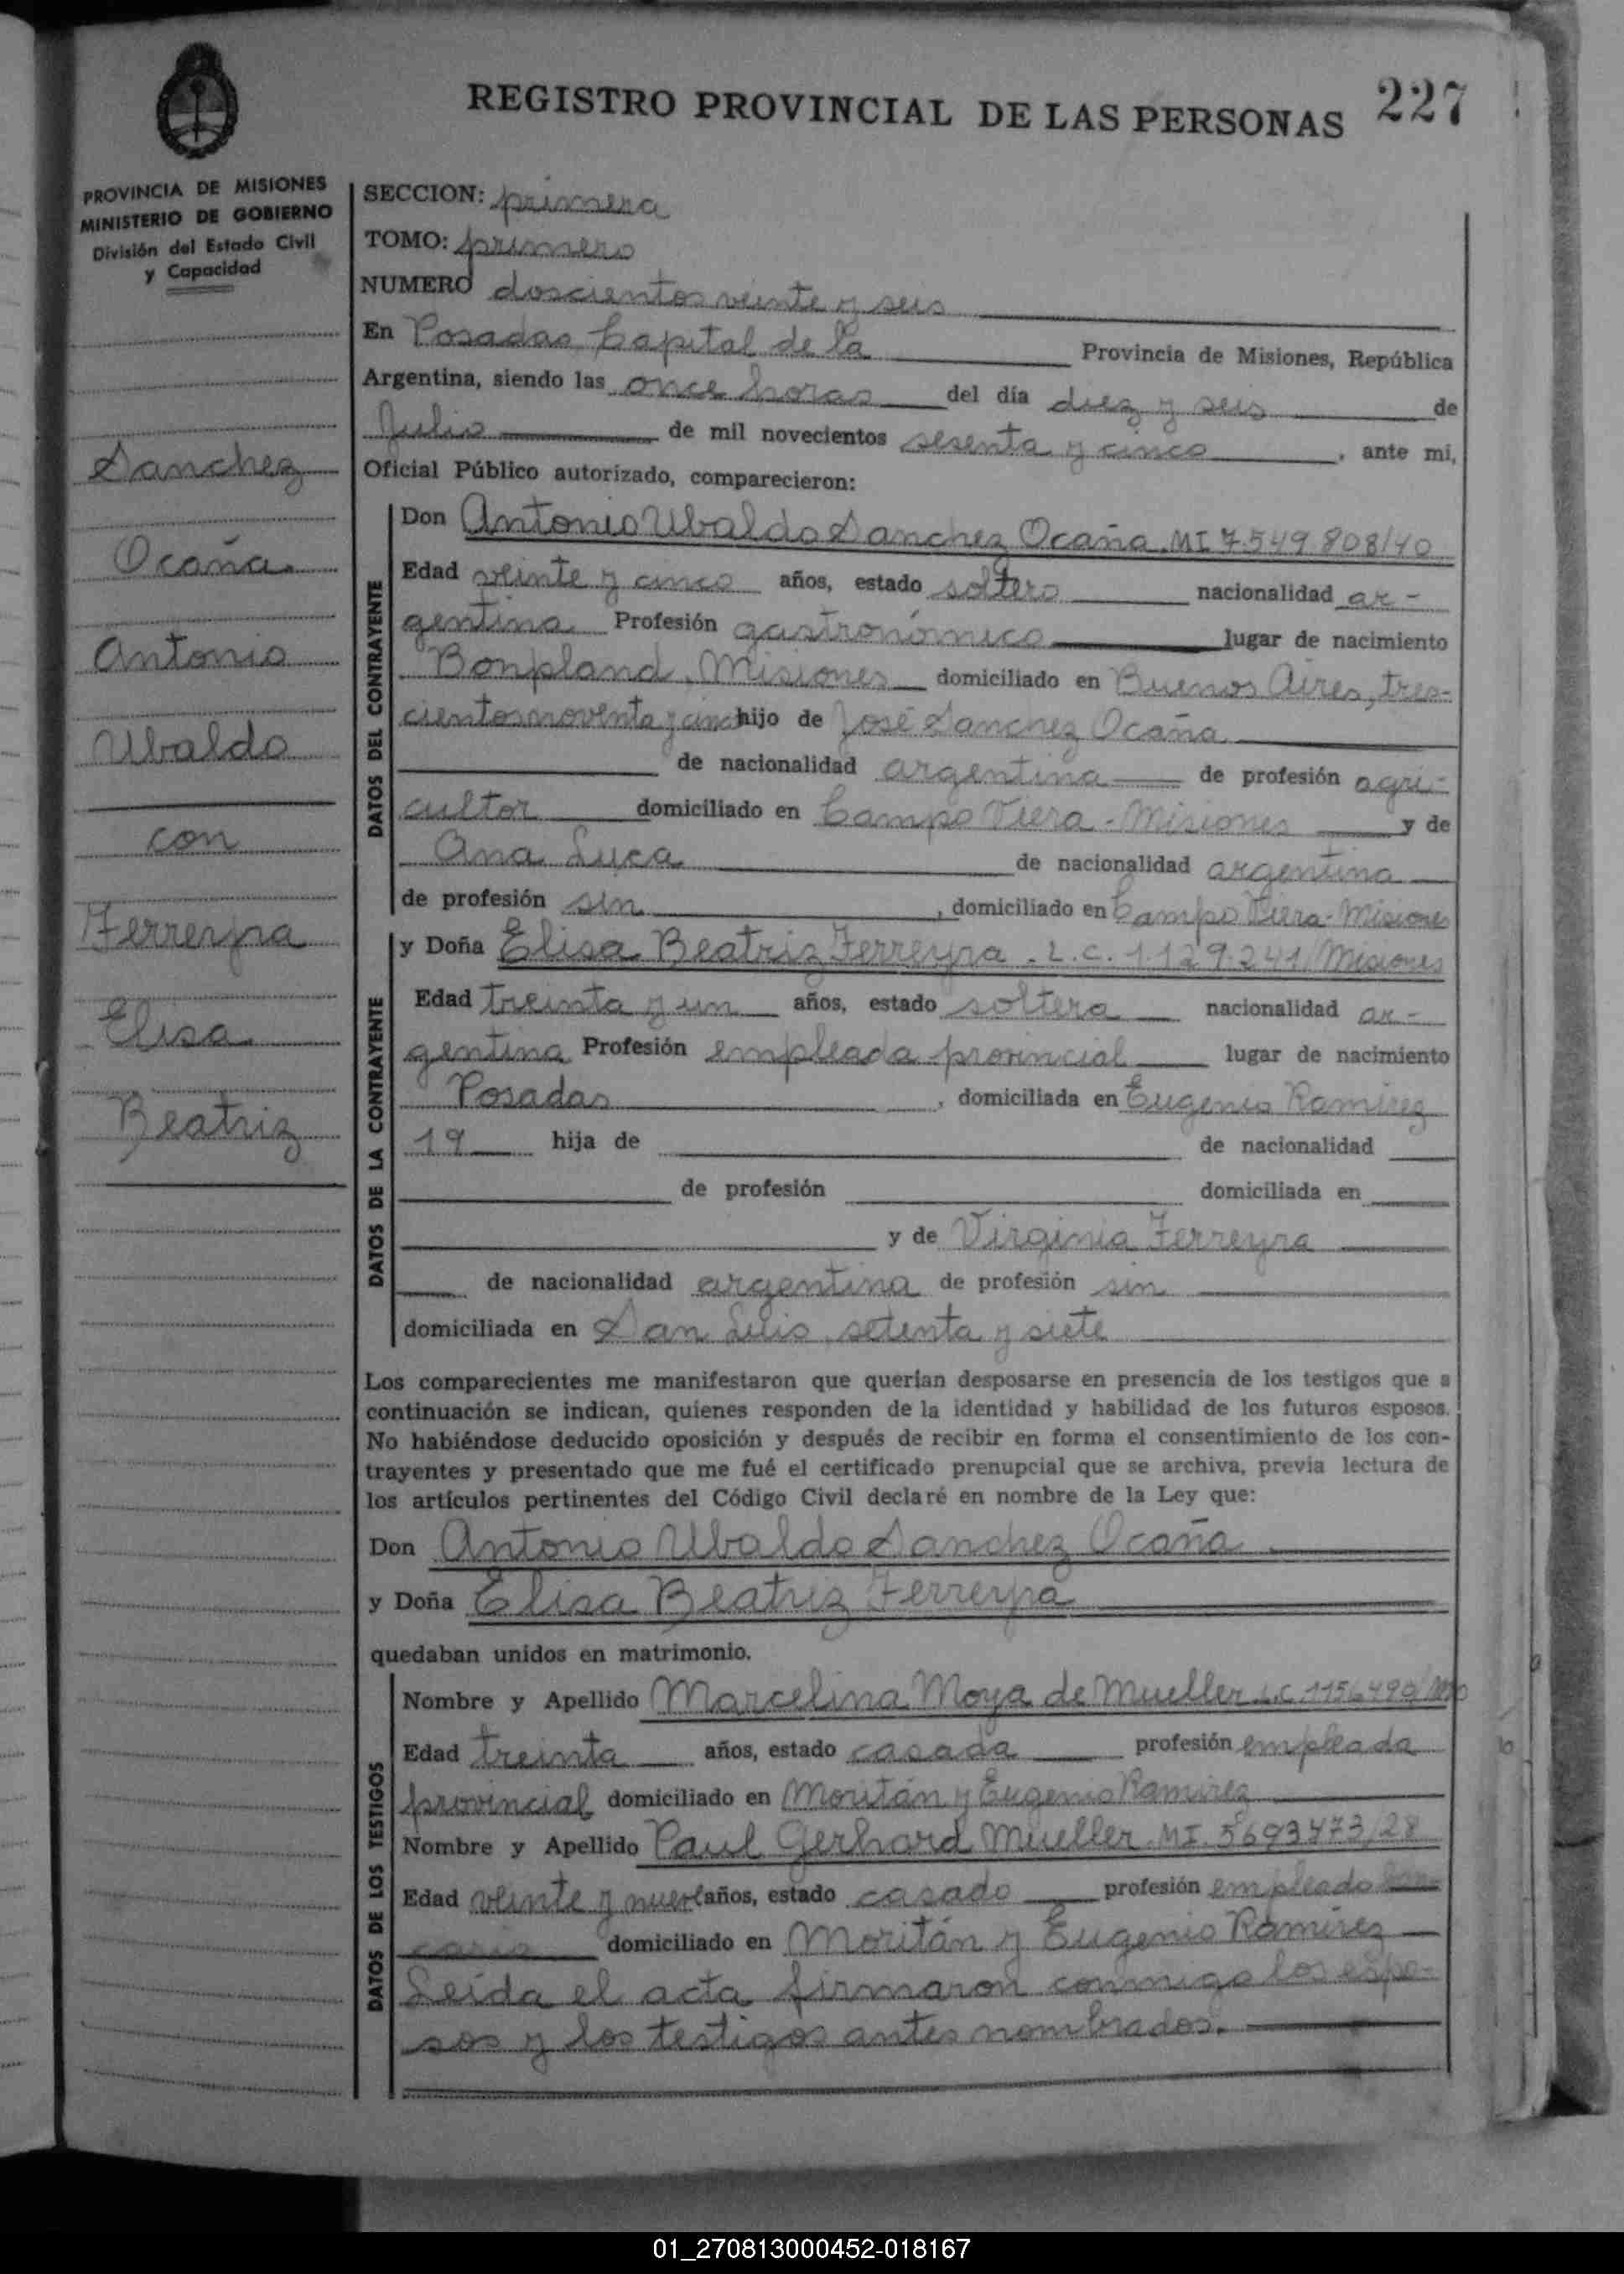 REGISTRO PROVINCIAL DE LAS PERSONAS 227
PROVINCIA DE MISIONES
MINISTERIO DE GOBIERNO
División del Estado Civil
y Capacidad
Sanchez
Ocaña
Antonio
Ubaldo
con
Ferreyra
Elisa
Beatriz
SECCION: primera
TOMO: primero
NUMERO doscientos veinte y seis
En Posadas, Capital de la Provincia de Misiones, República
Argentina, siendo las once horas del día diez y seis de
Julio de mil novecientos sesenta y cinco, ante mi,
Oficial Público autorizado, comparecieron:
DATOS DEL CONTRAYENTE
Don Antonio Ubaldo Sanchez Ocaña. MI 7.549.808/40
Edad veinte y cinco años, estado soltero nacionalidad ar-
gentina Profesión gastronómico lugar de nacimiento
Bonpland, Misiones domiciliado en Buenos Aires, tres-
cientos noventa y cinco hijo de José Sanchez Ocaña
de nacionalidad argentina de profesión agri-
cultor domiciliado en Campo Viera - Misiones y de
Ana Luca de nacionalidad argentina
de profesión sin, domiciliado en Campo Viera - Misiones
DATOS DE LA CONTRAYENTE
y Doña Elisa Beatriz Ferreyra. L.C. 1.129.241/Misiones
Edad treinta y un años, estado soltera nacionalidad ar-
gentina Profesión empleada provincial lugar de nacimiento
Posadas, domiciliada en Eugenio Ramirez
19 hija de de nacionalidad
de profesión domiciliada en
y de Virginia Ferreyra
de nacionalidad argentina de profesión sin
domiciliada en San Luis, setenta y siete
Los comparecientes me manifestaron que querían desposarse en presencia de los testigos que a
continuación se indican, quienes responden de la identidad y habilidad de los futuros esposos.
No habiéndose deducido oposición y después de recibir en forma el consentimiento de los con-
trayentes y presentado que me fué el certificado prenupcial que se archiva, previa lectura de
los artículos pertinentes del Código Civil declaré en nombre de la Ley que:
Don Antonio Ubaldo Sanchez Ocaña
y Doña Elisa Beatriz Ferreyra
quedaban unidos en matrimonio.
DATOS DE LOS TESTIGOS
Nombre y Apellido Marcelina Moya de Mueller L.C. 1156490
Edad treinta años, estado casada profesión empleada
provincial domiciliado en Moritán y Eugenio Ramirez
Nombre y Apellido Paul Gerhard Mueller. MI. 5693473/28
Edad veinte y nueve años, estado casado profesión empleado ban-
cario domiciliado en Moritán y Eugenio Ramírez
Leída el acta firmaron conmigo los espo-
sos y los testigos antes nombrados.
01_270813000452-018167